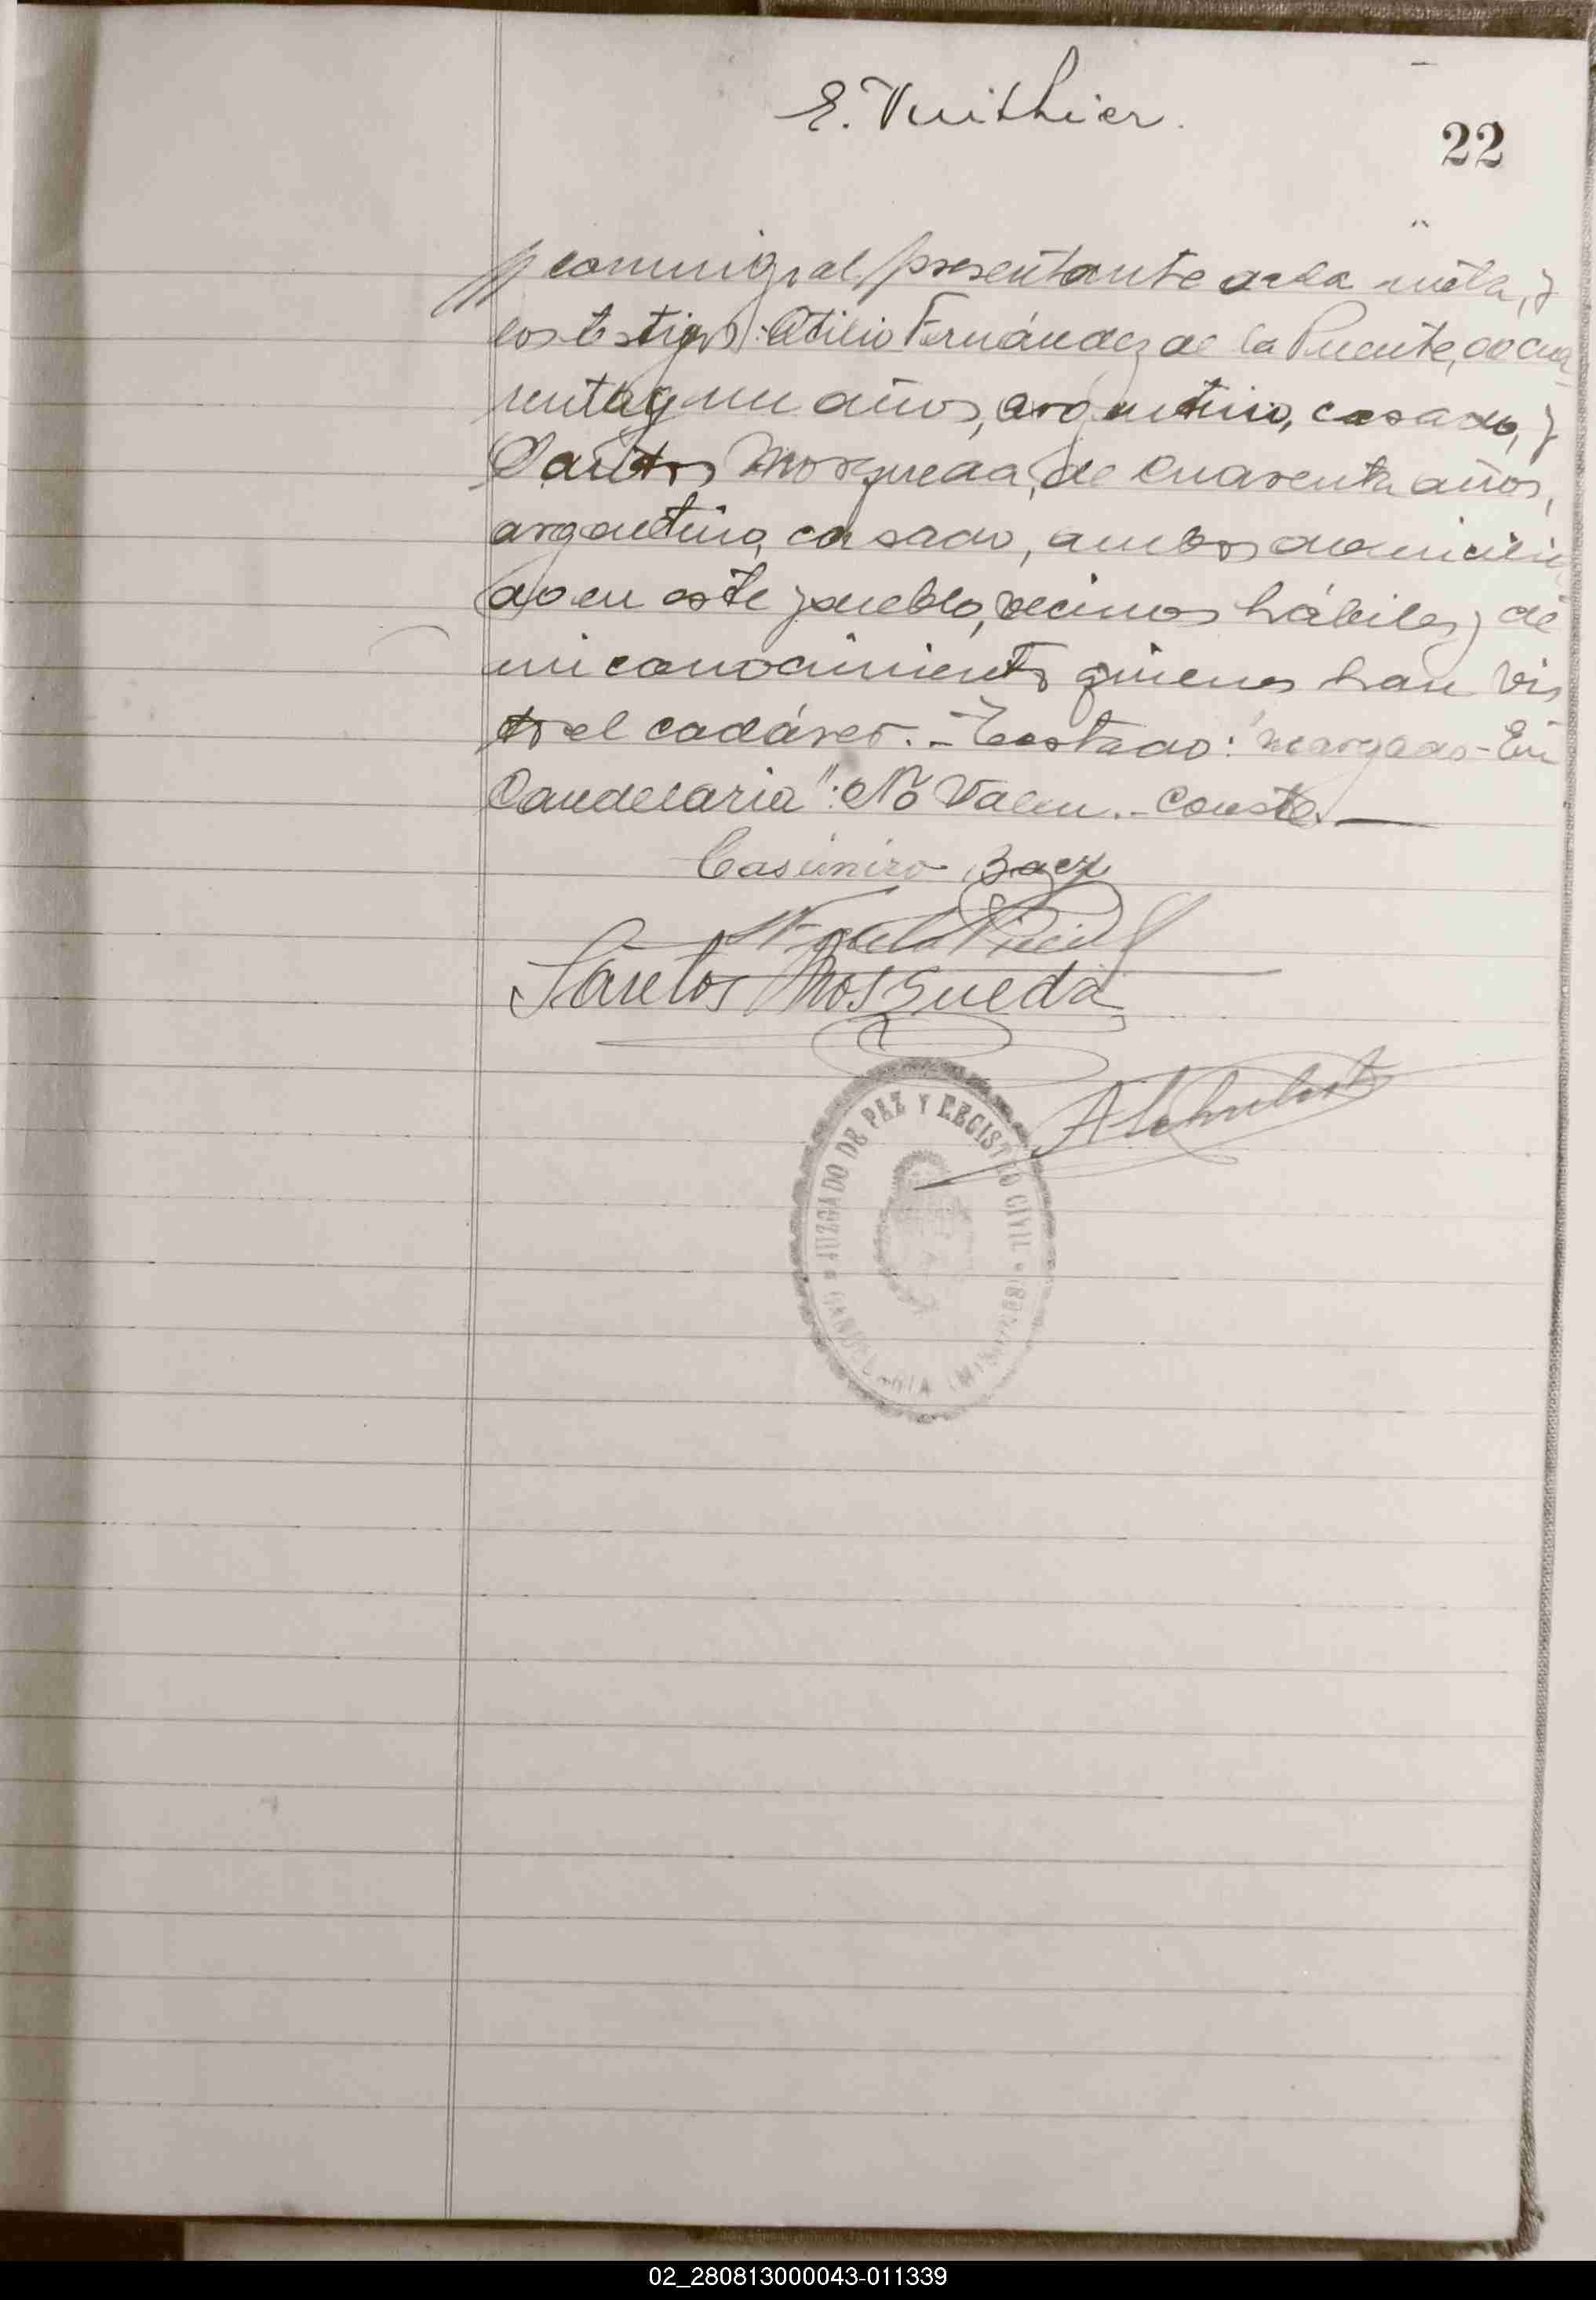 E. Vuithier.
22
// conmigo, el presentante de la nota, y
los testigos: Atilio Fernández de la Puente, de cua-
renta y un años, argentino, casado, y
Santos Mosqueda, de cuarenta años,
argentino, casado, ambos domicilia
do en este pueblo, vecinos hábiles y de
mi conocimiento quienes han vis
to el cadáver.- Testado: "encargado - En
Candelaria": No Valen.- Conste.
Casimiro Baez
F de la Puente
Santos Mosqueda
JUZGADO DE PAZ Y REGISTRO CIVIL
CANDELARIA (MISIONES)
02_280813000043-011339